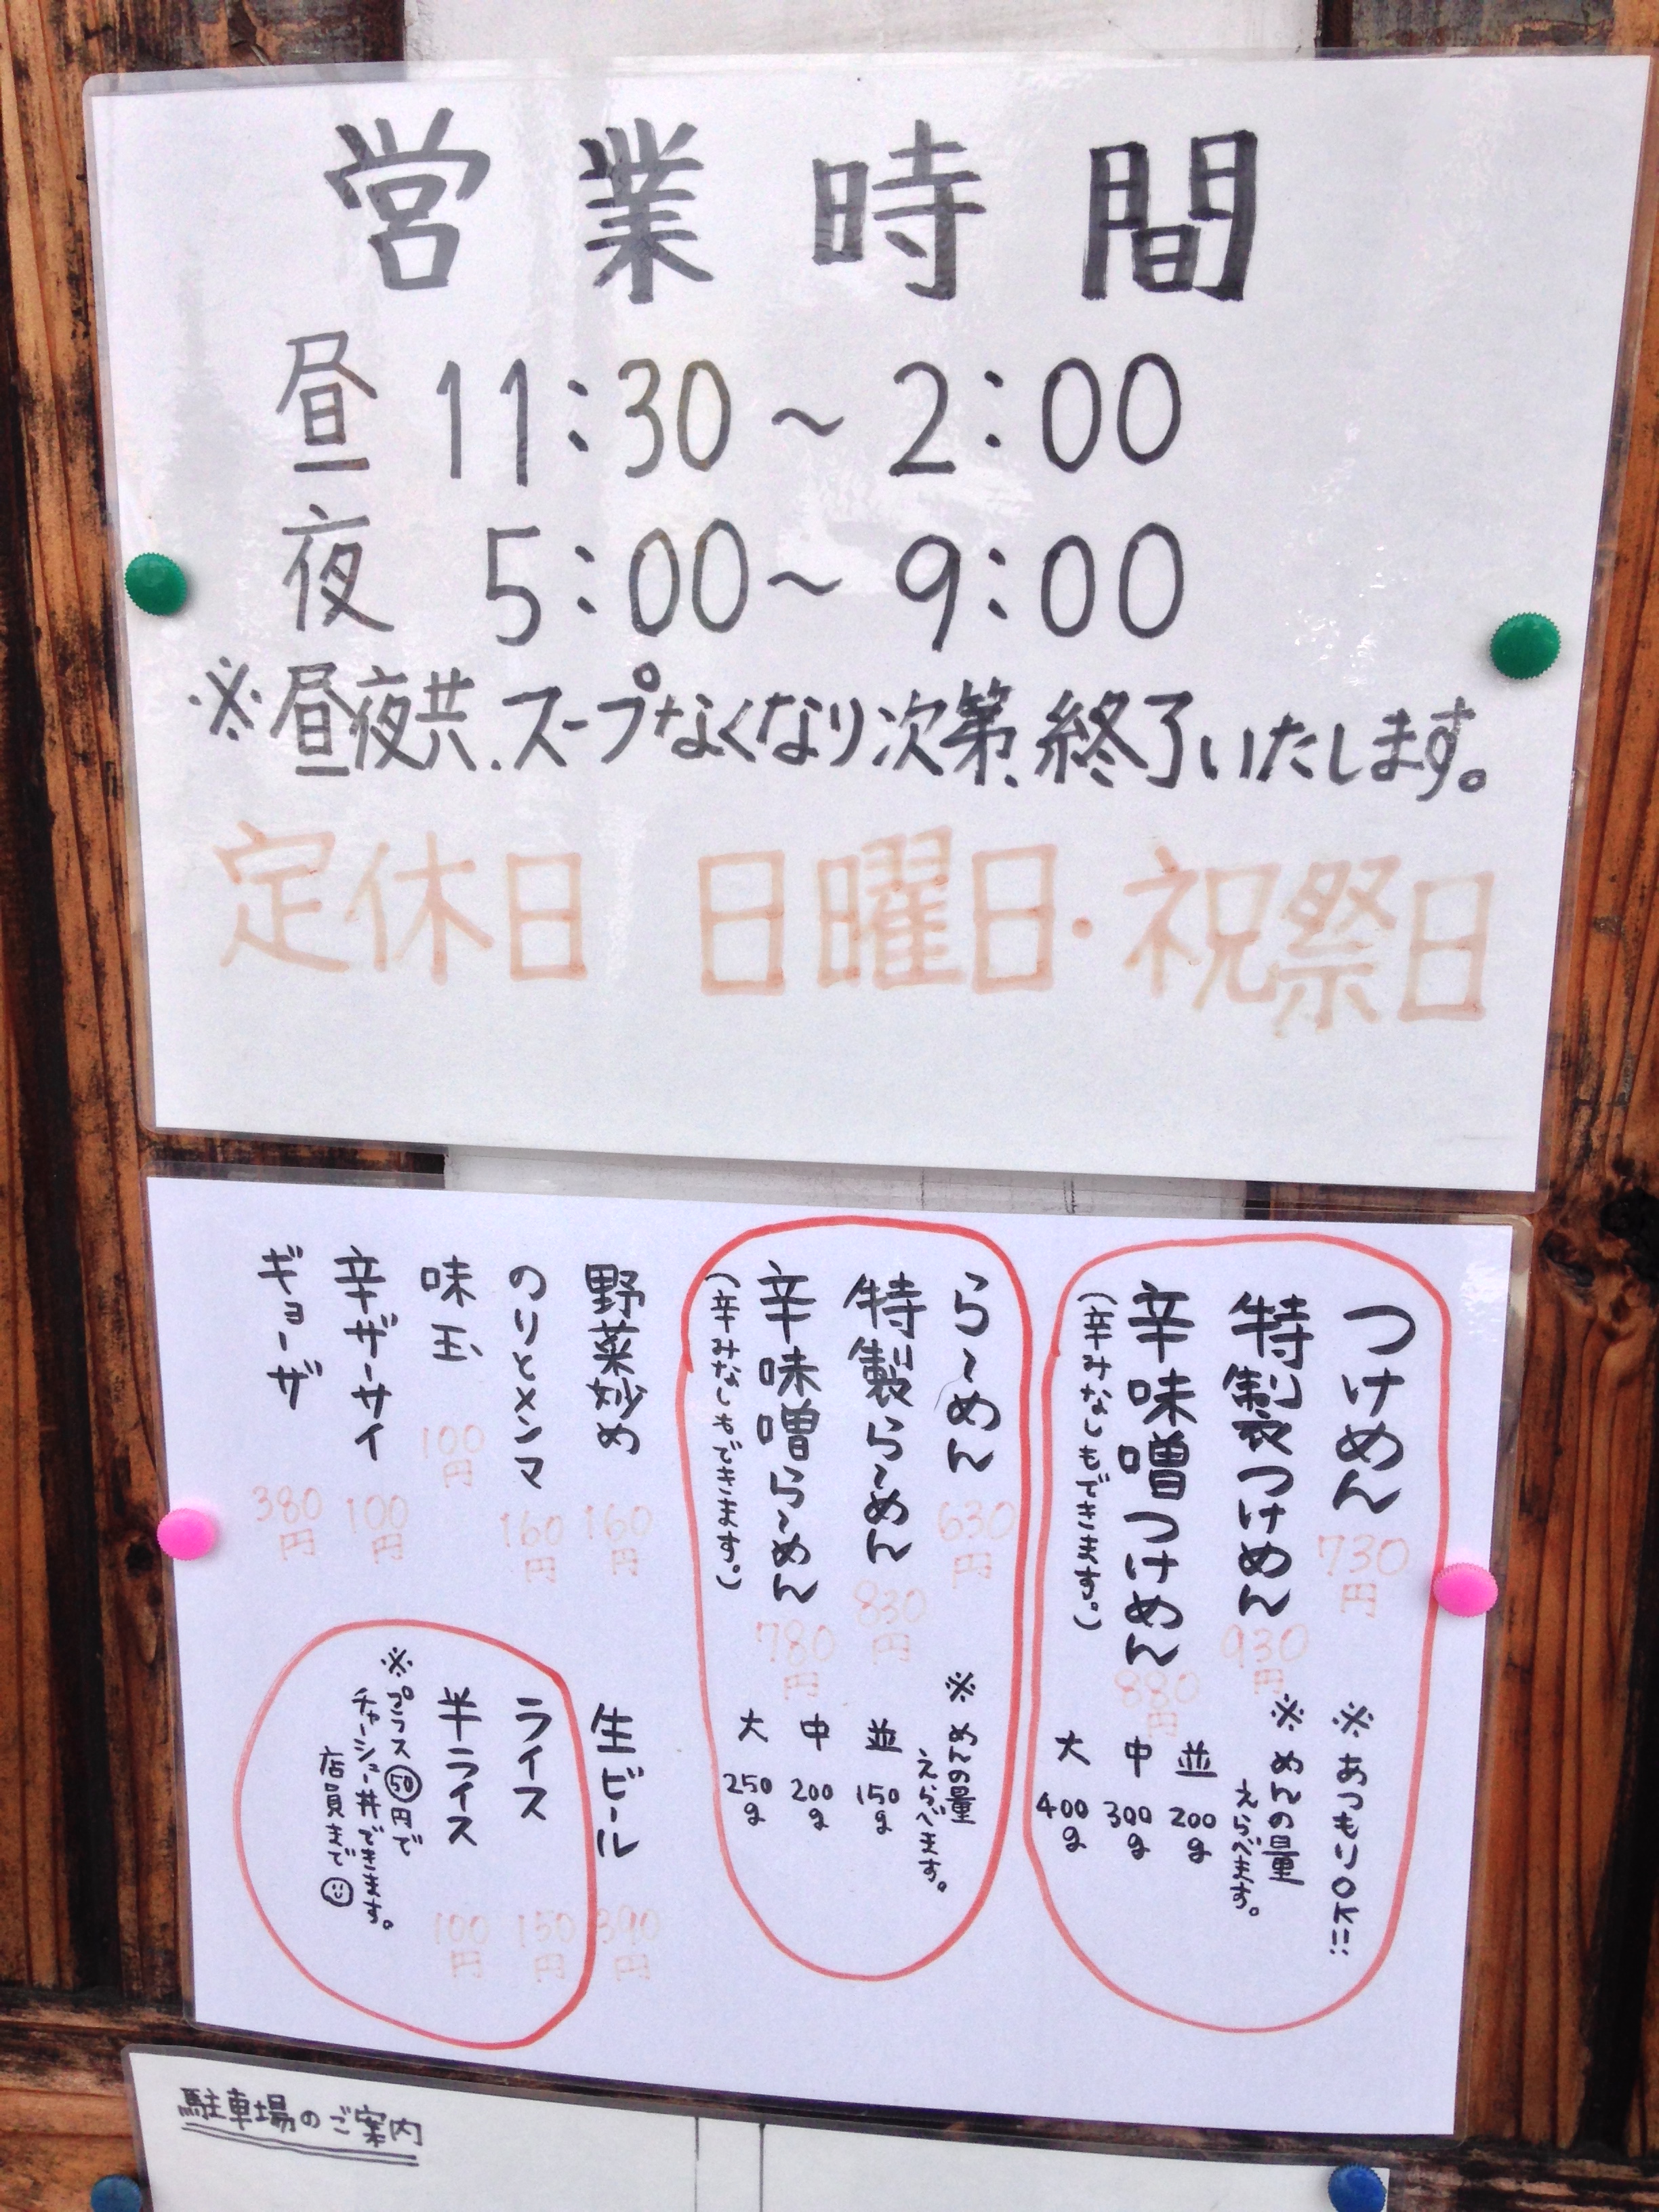 営業時間
昼 11:30～2:00
夜 5:00～9:00
※昼夜共、スープなくなり次第、終了いたします。
定休日 日曜日・祝祭日
つけめん 730円
特製つけめん 930円
辛味噌つけめん 880円
(辛みなしもできます。)
※あつもりOK!!
※めんの量
えらべます。
並 200g
中 300g
大 400g
ら～めん 630円
特製ら～めん 830円
辛味噌ら～めん 780円
(辛みなしもできます。)
※めんの量
えらべます。
並 150g
中 200g
大 250g
野菜炒め 160円
のりとメンマ 160円
味玉 100円
辛ザーサイ 100円
ギョーザ 380円
生ビール 390円
ライス 150円
半ライス 100円
※プラス50円で
チャーシュー丼できます。
店員まで
駐車場のご案内